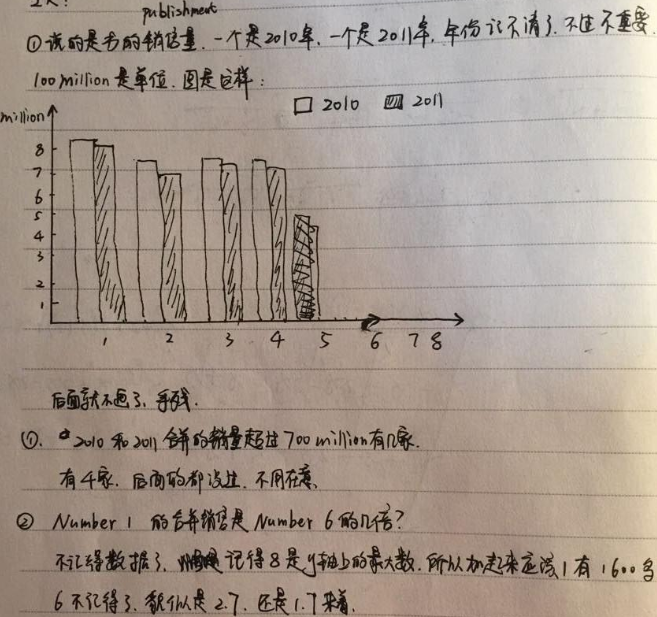 publishment
①说的是书的销售量.一个是2010年,一个是2011年,年份记不清了.不过不重要.
100 million是单位.图是这样:
2010 2011
million
8
7
6
5
4
3
2
1
1 2 3 4 5 6 7 8
后面就不画了、手残.
①. 2010 和 2011 合并的销量超过 700 million 有几家.
有4家. 后面的都没过. 不用在意、
② Number 1 的合并销售是 Number 6 的几倍?
不记得数据了, 记得 8 是 y轴上的最大数. 所以加起来应该 1 有 1600 多
6 不记得了. 貌似是 2.7. 还是 1.7 来着.